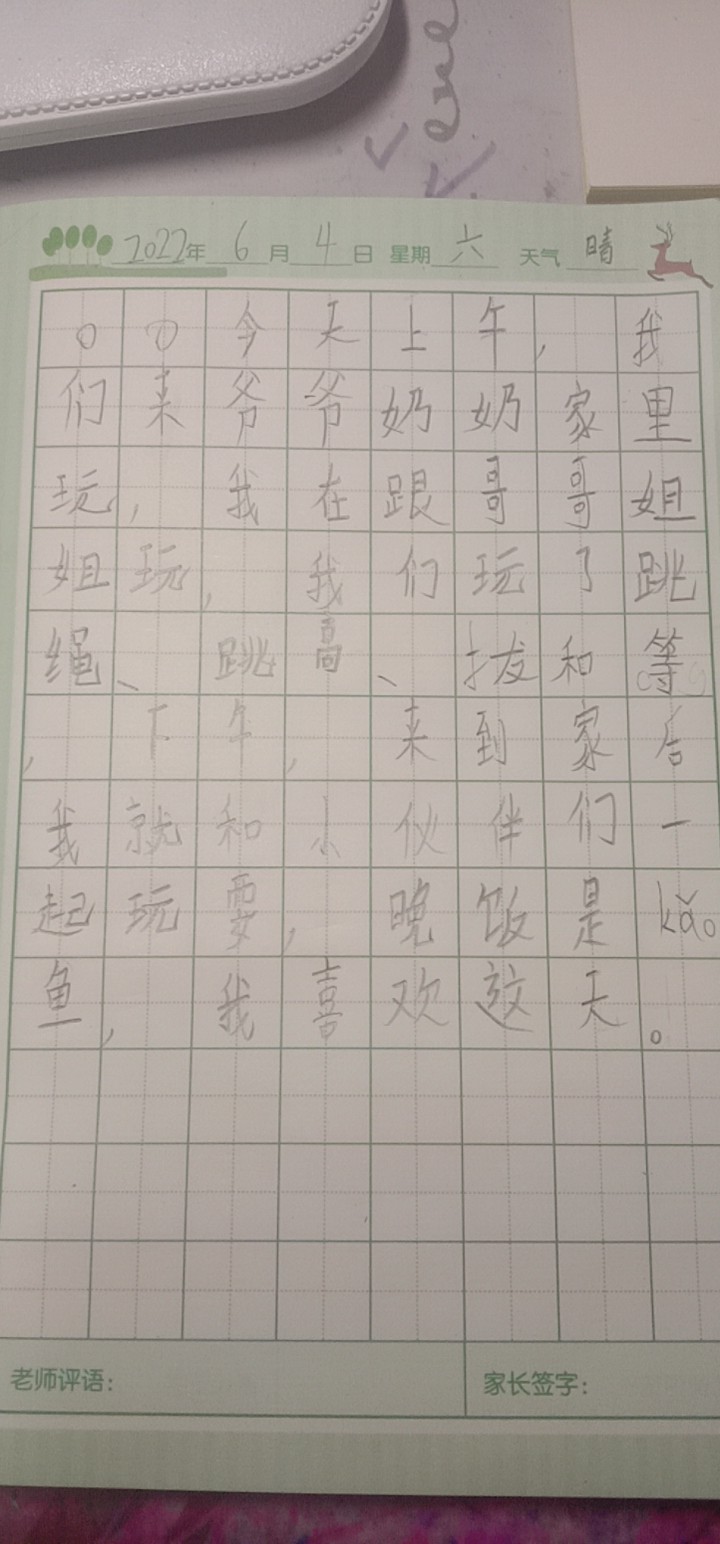 2022年 6 月 4 日 星期 六 天气 晴
今天上午，我
们来爷爷奶奶家里
玩，我在跟哥哥姐
姐玩，我们玩了跳
绳、跳高、拔和等
，下午，来到家后
我就和小伙伴们一
起玩耍，晚饭是kǎo
鱼，我喜欢这天。
老师评语：
家长签字：